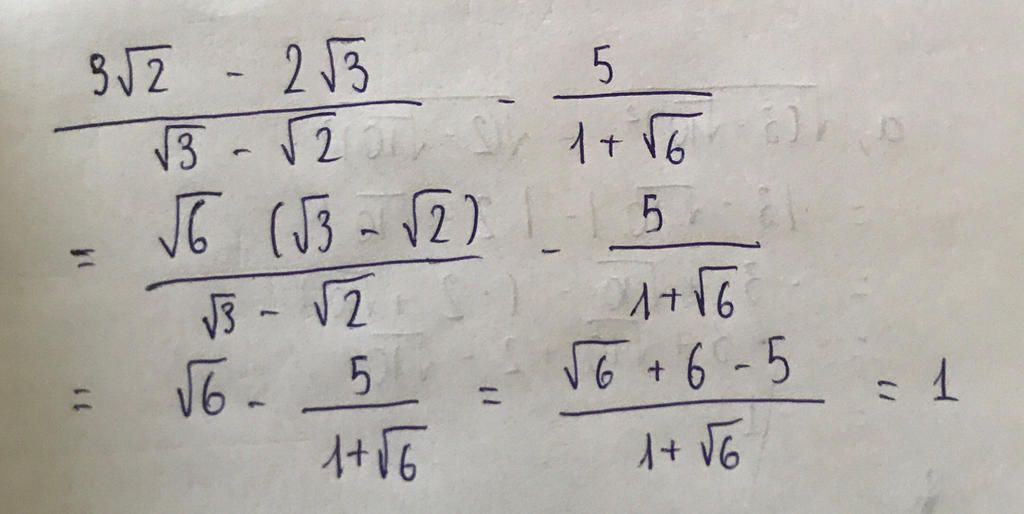 (3√2 - 2√3)/(√3 - √2) - 5/(1 + √6)
= (√6 (√3 - √2))/(√3 - √2) - 5/(1 + √6)
= √6 - 5/(1 + √6) = (√6 + 6 - 5)/(1 + √6) = 1